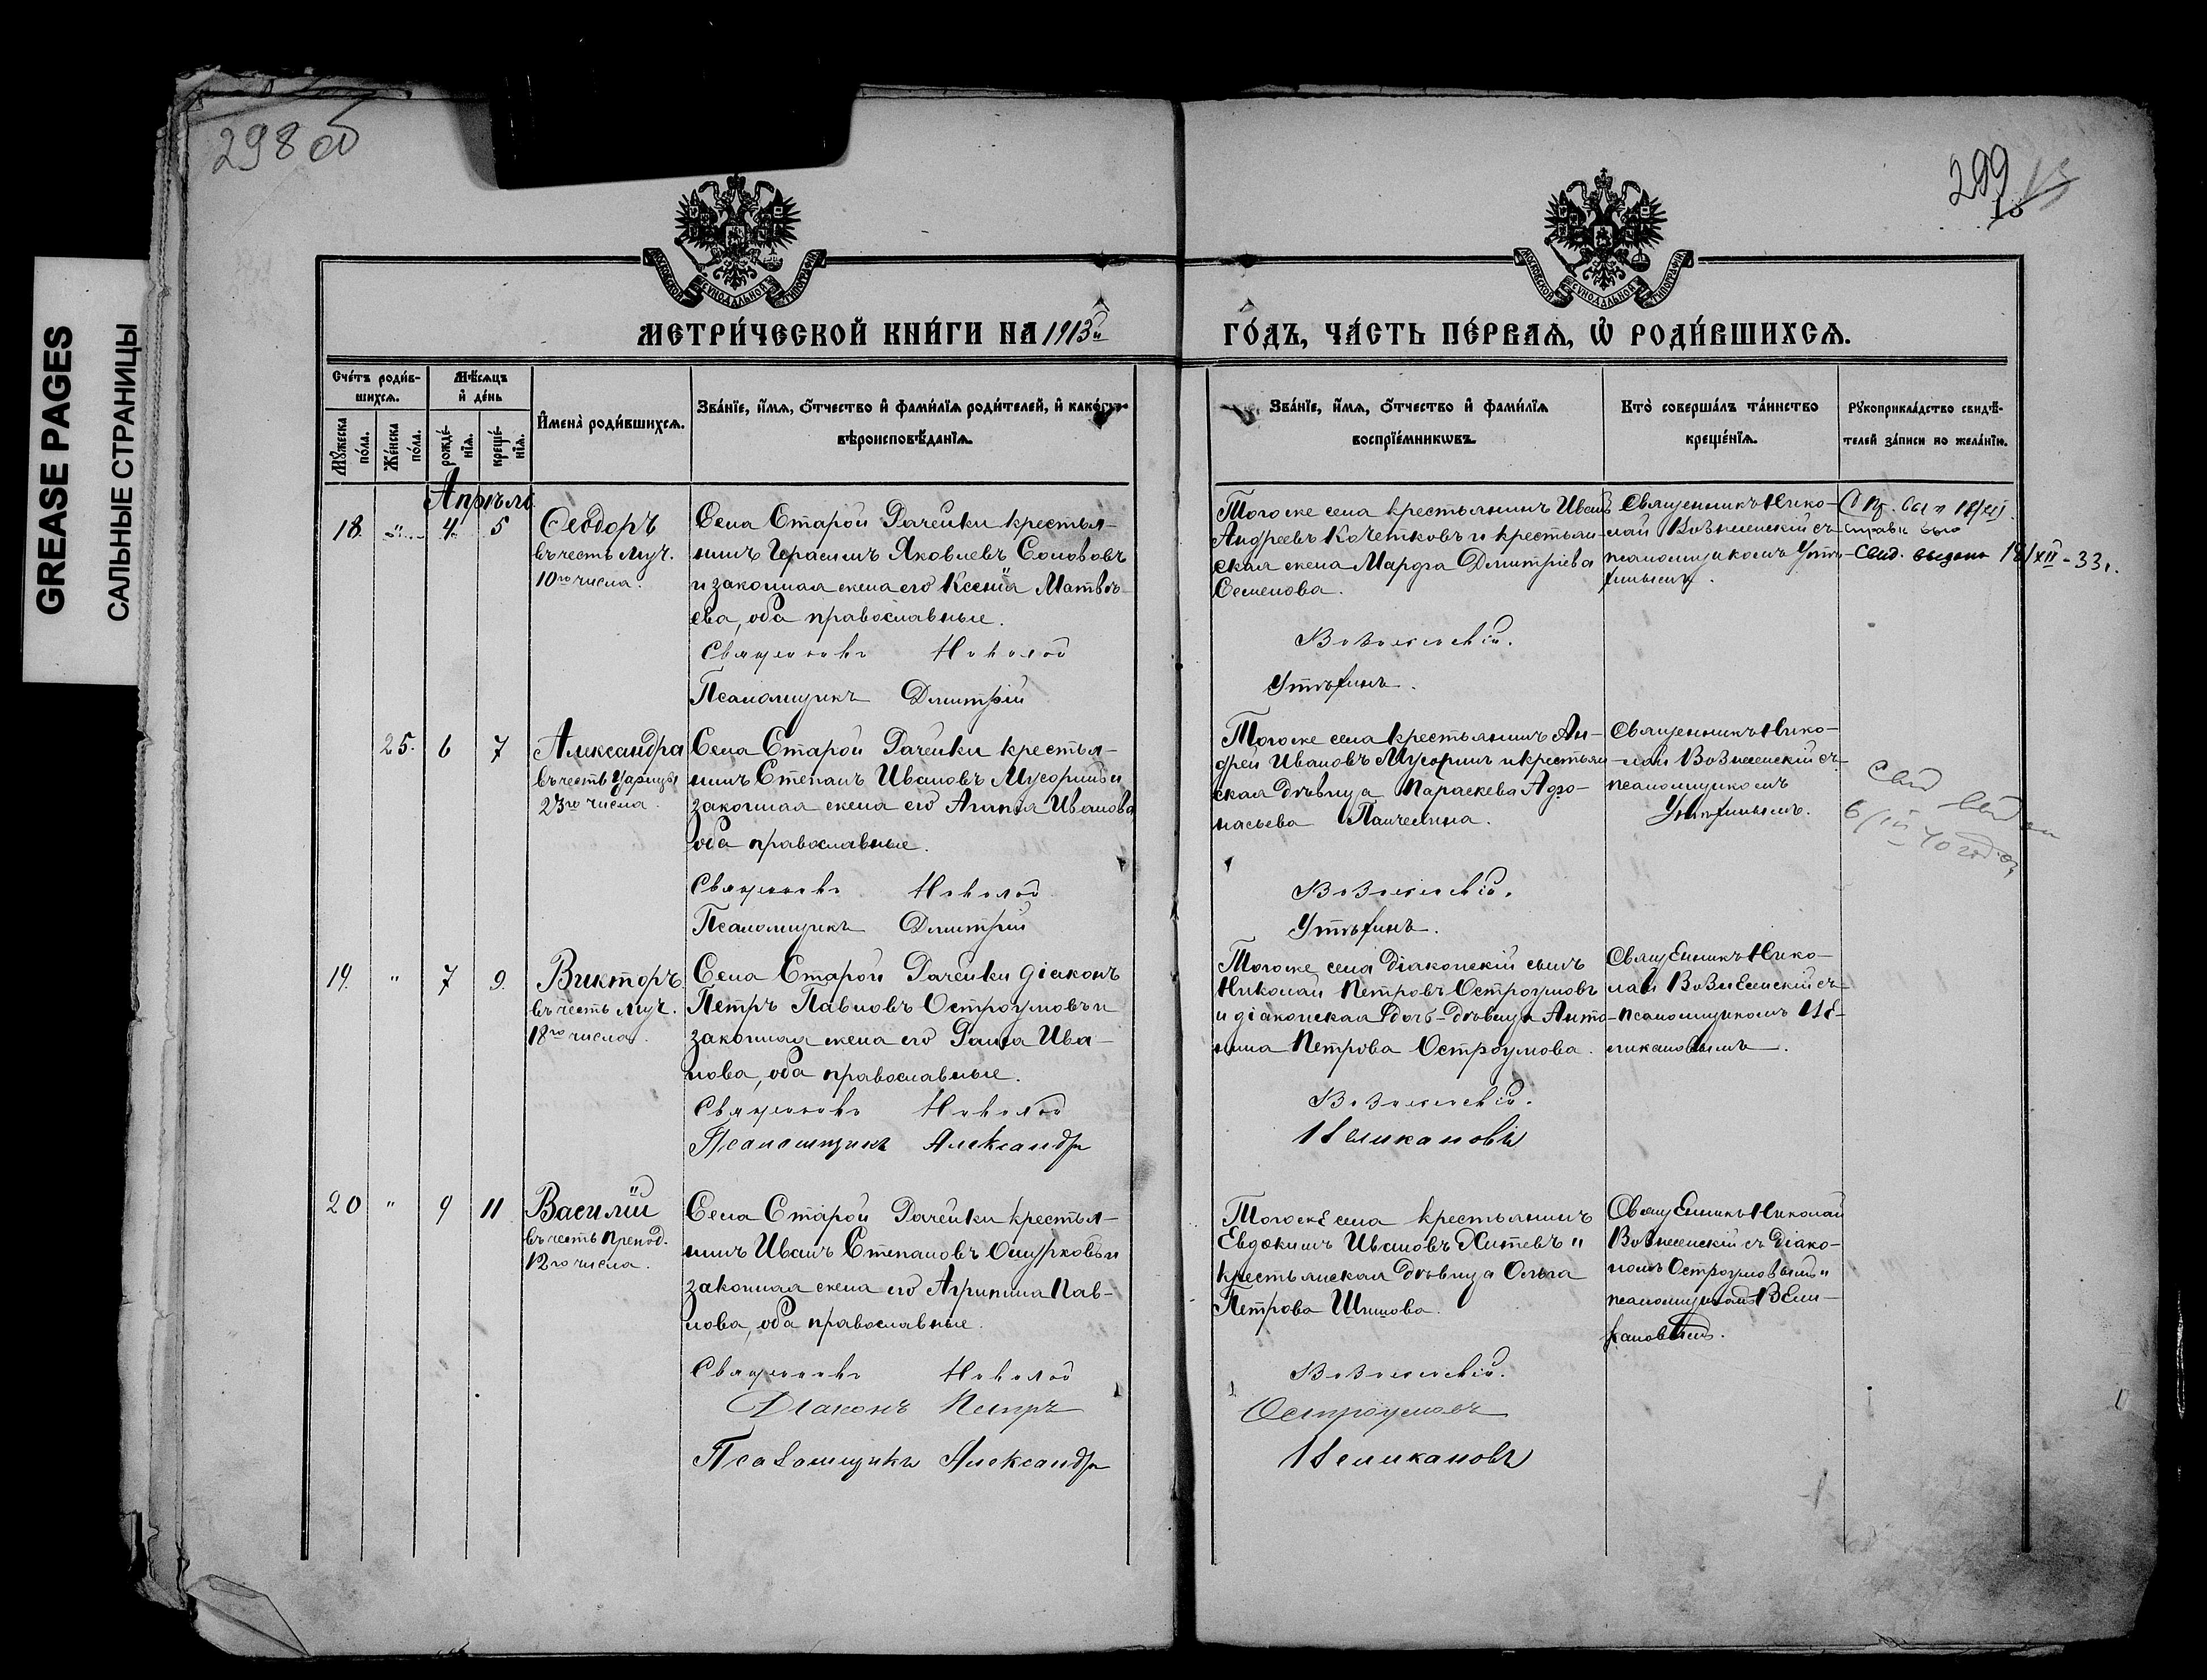 GREASE PAGES
САЛЬНЫЕ СТРАНИЦЫ
298 об
299
МОСКОВСКОЙ СУНОДАЛЬНОЙ ТИПОГРАФІИ
МОСКОВСКОЙ СУНОДАЛЬНОЙ ТИПОГРАФІИ
МЕТРИ́ЧЕСКОЙ КНИ́ГИ НА 1913й
ГО́ДЪ, ЧА́СТЬ ПЕ́РВАѦ, Ѡ҆ РОДИ́ВШИХСѦ.
Сче́тъ роди́в-
шихсѧ.
Мꙋ́жеска по́ла.
Же́нска по́ла.
Мѣ́сѧцъ
и҆ де́нь
рожде́-
нїѧ.
креще́-
нїѧ.
И҆мена̀ роди́вшихсѧ.
Зва́нїе, и҆́мѧ, ѻ҆́тчество и҆ фами́лїѧ роди́телей, и҆ како́гѡ
вѣроисповѣ́данїѧ.
Зва́нїе, и҆́мѧ, ѻ҆́тчество и҆ фами́лїѧ
воспрїе́мникѡвъ.
Кто̀ соверша́лъ та́инство
креще́нїѧ.
Рꙋкоприкла́дство свидѣ́-
телей за́писи по жела́нїю.
Апрѣль
18. " 4. 5
Ѳеодоръ
въ честь муч.
10го числа.
Села Старой Рачейки крестья-
нинъ Герасимъ Яковлевъ Солововъ
и законная жена его Ксенія Матвѣ-
ева, оба православные.
Священникъ Николай
Псаломщикъ Димитрій
Того же села крестьянинъ Иванъ
Андреевъ Кочетковъ и крестьян-
ская жена Марфа Димитріева
Семенова.
Вознесенскій.
Утѣхинъ.
Священникъ Нико-
лай Вознесенскій съ
псаломщикомъ Утѣ-
хинымъ.
Свид. выдано 18/XII-33г.
25. 6 7
Александра
въ честь Царицы
23го числа.
Села Старой Рачейки крестья-
нинъ Степанъ Ивановъ Мусоринъ и
законная жена его Агапія Иванова
оба православные.
Священникъ Николай
Псаломщикъ Димитрій
Того же села крестьянинъ Ан-
дрей Ивановъ Мусоринъ и крестьян-
ская дѣвица Параскева Афо-
насьева Панчешна.
Вознесенскій.
Утѣхинъ.
Священникъ Нико-
лай Вознесенскій съ
псаломщикомъ
Утѣхинымъ.
Свид
40 года
19. " 7 9.
Викторъ
въ честь муч.
18го числа.
Села Старой Рачейки діаконъ
Петръ Павловъ Остроумовъ и
законная жена его Раиса Ива-
нова, оба православные.
Священникъ Николай
Псаломщикъ Александръ
Того же села діаконскій сынъ
Николай Петровъ Остроумовъ
и діаконская дочь-дѣвица Анто-
нина Петрова Остроумова.
Вознесенскій.
Великановъ
Священникъ Нико-
лай Вознесенскій съ
псаломщикомъ Ве-
ликановымъ.
20 " 9 11
Василій
въ честь препод.
12го числа.
Села Старой Рачейки крестья-
нинъ Иванъ Степановъ Ошурковъ и
законная жена его Агрипина Пав-
лова, оба православные.
Священникъ Николай
Діаконъ Петръ
Псаломщикъ Александръ
Того же села крестьянинъ
Евдокимъ Ивановъ Хитевъ и
крестьянская дѣвица Ольга
Петрова Шишова.
Вознесенскій.
Остроумовъ
Великановъ
Священникъ Николай
Вознесенскій съ діако-
номъ Остроумовымъ и
псаломщикомъ Вели-
кановымъ.